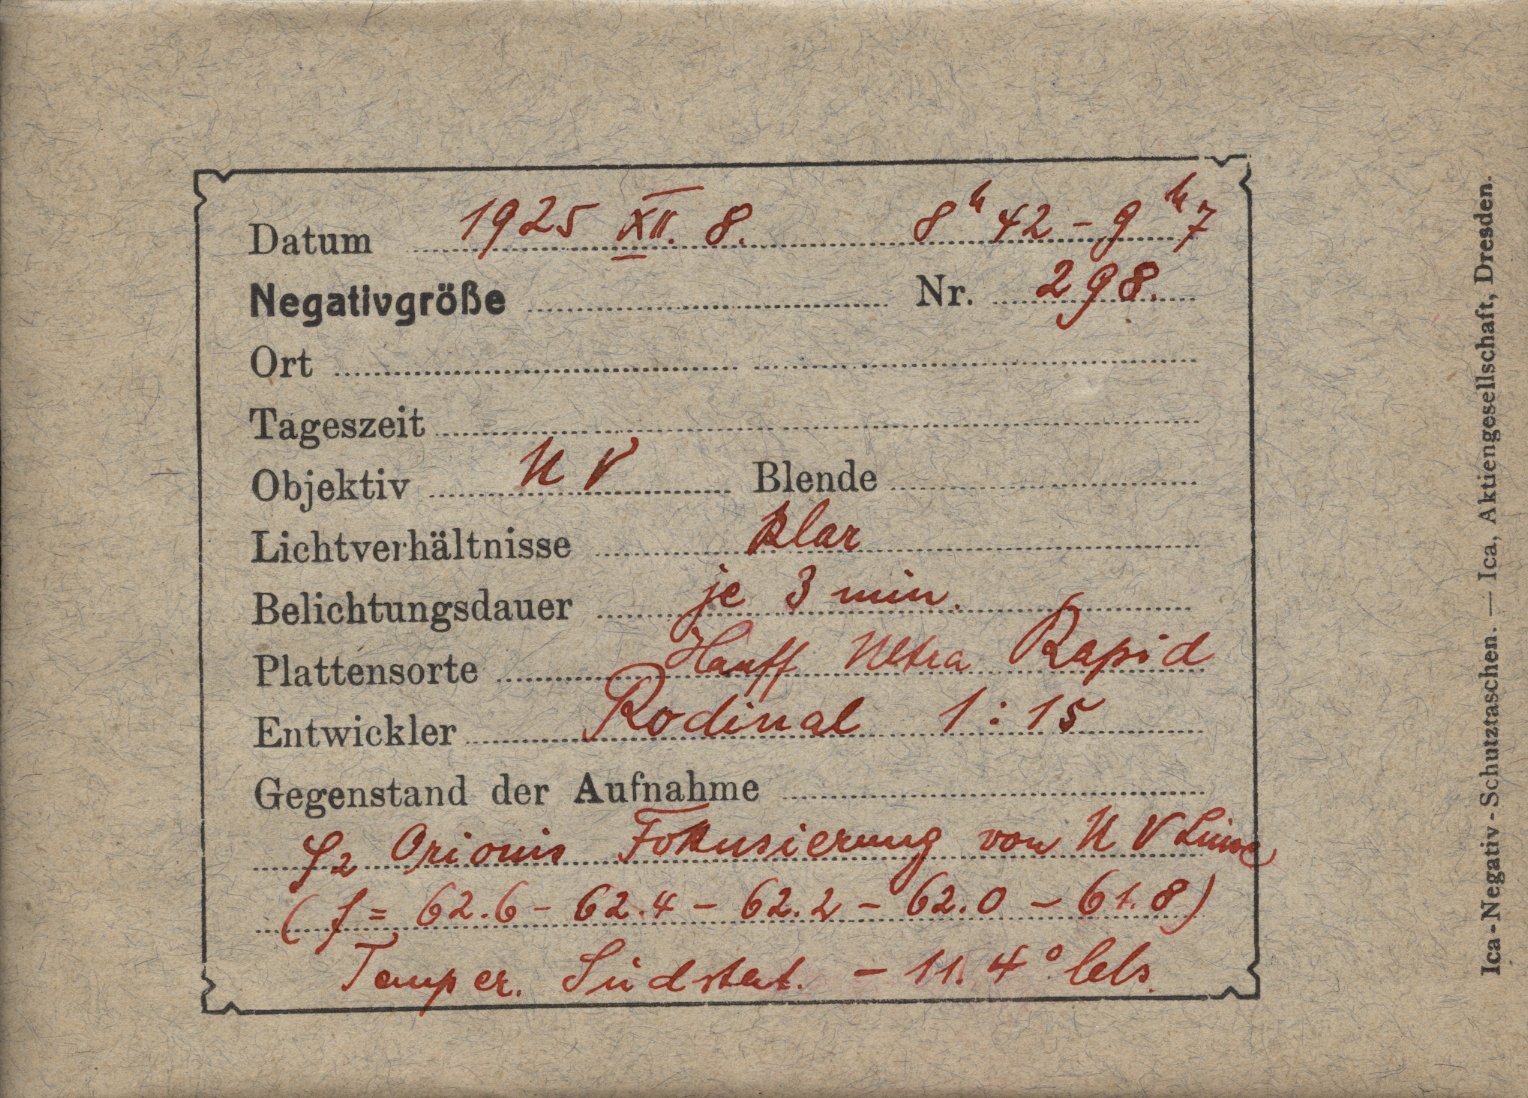 Datum 1925 XII. 8. 8h 42 - 9h 7
Negativgröße Nr. 298.
Ort
Tageszeit
Objektiv U V Blende
Lichtverhältnisse klar
Belichtungsdauer je 3 min.
Plattensorte Hauff Ultra Rapid
Entwickler Rodinal 1:15
Gegenstand der Aufnahme
Orionis Fokusierung von U V Linse
(f = 62.6 - 62.4 - 62.2 - 62.0 - 61.8)
Temper. Südstat. - 11.4° Cels.
Ica-Negativ-Schutztaschen. — Ica, Aktiengesellschaft, Dresden.